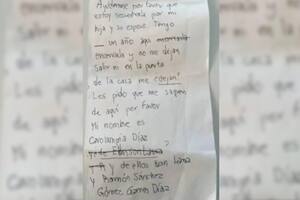 Ayúdenme por favor que
estoy secuestrada por mi
hija y su esposo. Tengo
un año aqui
encerrada y no me dejan
salir ni en la puerta
de la casa me dejan!
Les pido que me saquen
de aqui por Favor
Mi nombre es
Carolangria Díaz
y de ellos son Lana
y Ramón Sánchez
Gómez Gamos Díaz